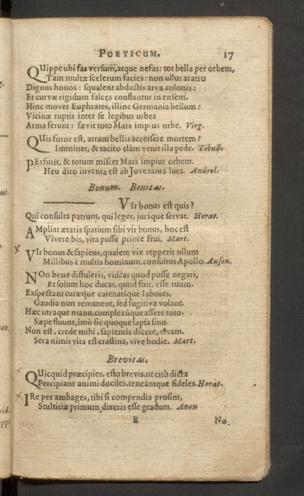 POETICUM. 17
QUippe ubi fas versum, atque nefas: tot bella per orbem,
Tam multæ scelerum facies: non ullus aratro
Dignus honos: squalent abductis arva colonis:
Et curvæ rigidum falces conflantur in ensem.
Hinc movet Euphrates, illinc Germania bellum:
Vicinæ ruptis inter se legibus urbes
Arma ferunt: sævit toto Mars impius orbe. Virg.
QUis furor est, atram bellis accersere mortem?
Imminet, & tacito clàm venit illa pede. Tibull.
PErfurit, & totum miscet Mars impius orbem.
Heu diro inventa est ab Jove tanta lues. Andrel.
Bonum. Bonitas.
VIr bonus est quis?
Qui consulta patrum, qui leges, juráque servat. Horat.
AMpliat ætatis spatium sibi vir bonus, hoc est
Vivere bis, vita posse priore frui. Mart.
VIr bonus & sapiens, qualem vix repperit ullum
Millibus è multis hominum, consultus Apollo. Auson.
NOn bene distuleris, videas quod posse negari,
Et solum hoc ducas, quod fuit, esse tuum.
Exspectant curæque catenatique labores,
Gaudia non remanent, sed fugitiva volant.
Hæc utraque manu complexúque assere toto.
Sæpe fluunt, imò sic quoque lapsa sinu.
Non est, crede mihi, sapientis dicere, vivam.
Sera nimis vita est crastina, vive hodie. Mart.
Brevitas.
QUicquid præcipies, esto brevis, ut citò dicta
Percipiant animi dociles, teneántque fideles. Horat.
IRe per ambages, tibi si compendia prosint,
Stultitiæ primum dixeris esse gradum. Anon
B No.